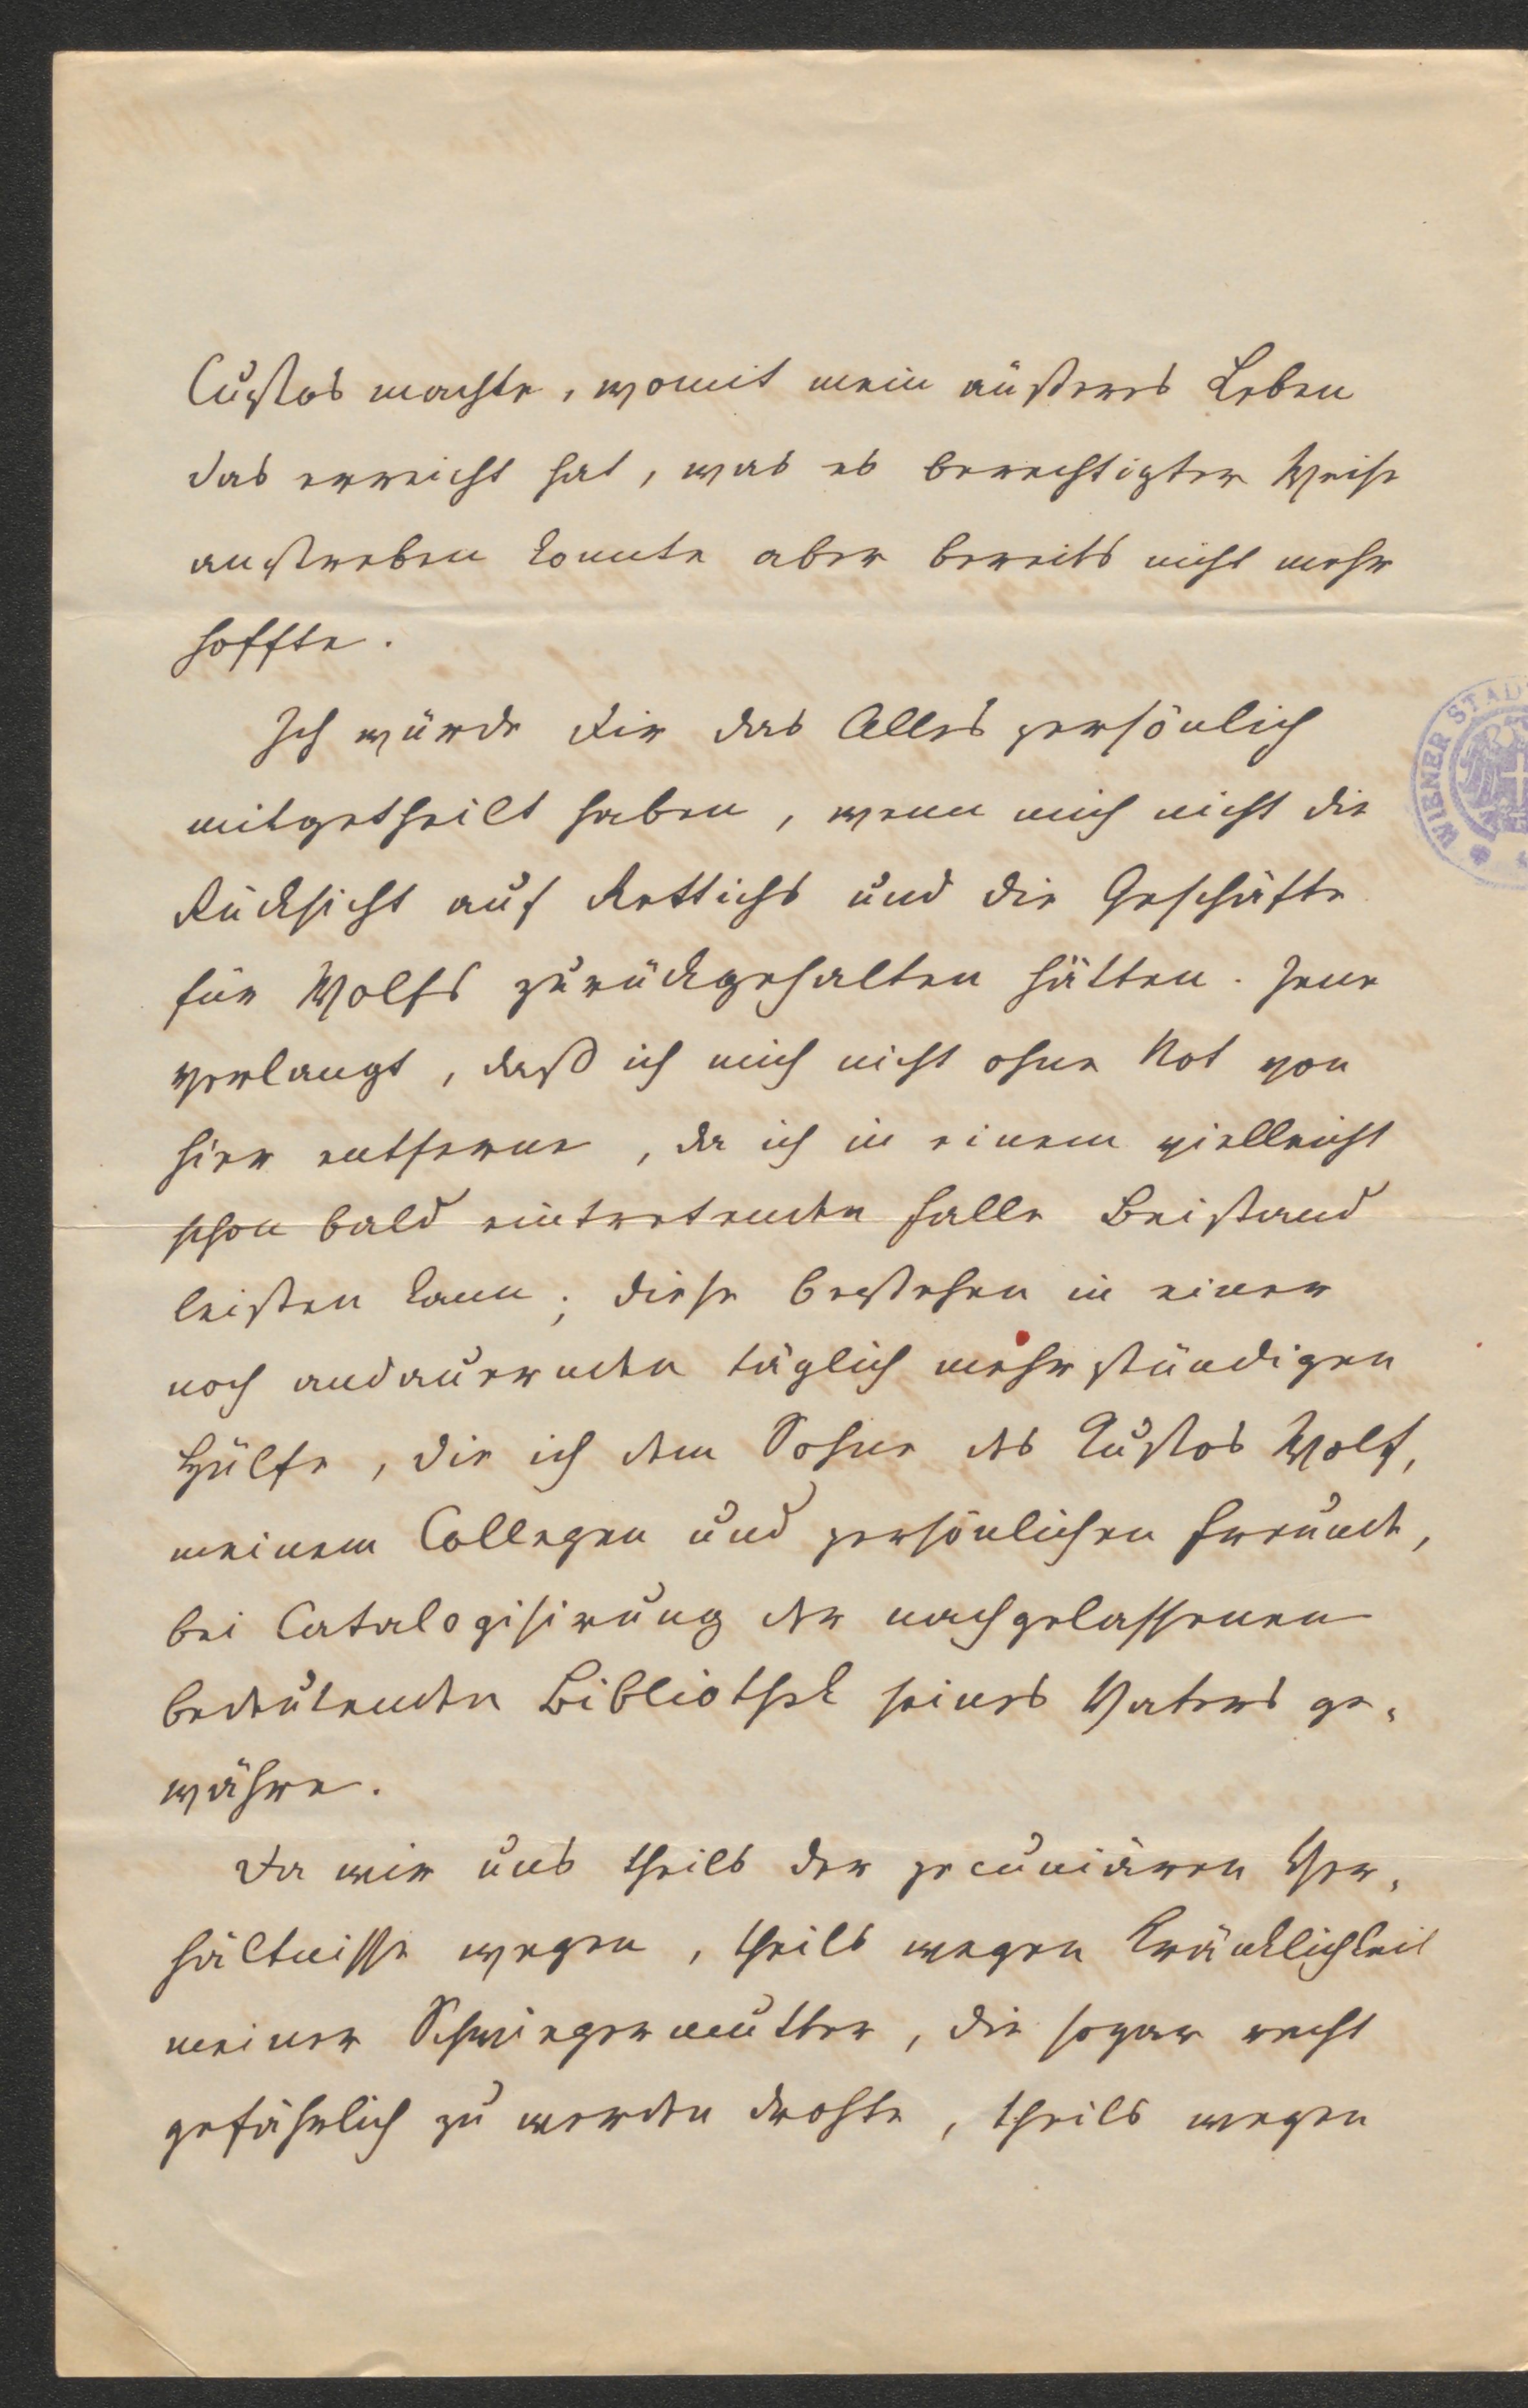 Custos machte, womit mein äußeres Leben
das erreicht hat, was es berechtigter Weise
anstreben konnte aber bereits nicht mehr
hoffte.
Ich würde Dir das Alles persönlich
mitgetheilt haben, wenn mich nicht die
Rücksicht auf Rettichs und die Geschäfte
für Wolfs zurückgehalten hätten. Jene
verlangt, daß ich mich nicht ohne Not von
hier entferne, da ich in einem vielleicht
schon bald eintretenden Falle Beistand
leisten kann; diese bestehen in einer
noch andauernden täglich mehrstündigen
Hülfe, die ich dem Sohne des Kustos Wolf,
meinem Collegen und persönlichen Freunde,
bei Catalogisirung der nachgelassenen
bedeutenden Bibliothek seines Vaters ge-
währe.
Da wir uns theils der pecuniären Ver-
hältnisse wegen, theils wegen Kränklichkeit
meiner Schwiegermutter, die sogar recht
gefährlich zu werden drohte, theils wegen
WIENER STAD